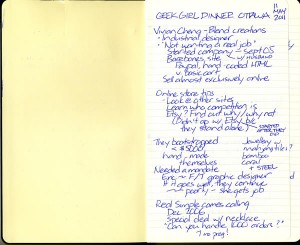 GEEK GIRL DINNER OTTAWA
11
MAY
2011
Vivian Cheng - Blend Creations
• Industrial designer
• Not wanting a real job
Started company - Sept 05
Barebones site w/ husband
Paypal, hand-coded HTML
v. basic cart
Sell almost exclusively online
Online store tips
- Look @ other sites
Learn who competition is
Etsy? Find out why/why not
(Didn't do w/ Etsy, b/c
they stand alone)
started
after they
did
They bootstrapped
< $5000
hand, made
themselves
Jewellery w/
bamboo
coral
+ steel
Needed a mandate
Eric ~ F/T graphic designer
If it goes well, they continue
~ poorly - she gets job
Real Simple comes calling
Dec 2006
Special deal w/ necklace
"Can you handle 1000 orders?"
? no prob!